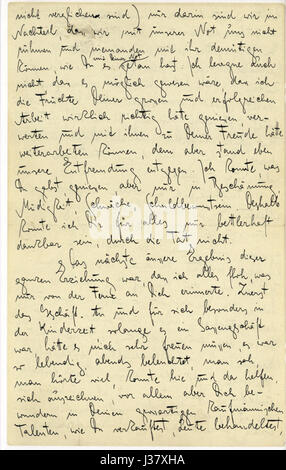 nicht verglichen sind) nur darin sind wir im
Nachteil dass wir mit unserer Not uns nicht
rühmen und niemanden mit ihr demütigen
können, wie Du es mit Deiner Not getan hast. Ich leugne auch
nicht dass es möglich gewesen wäre dass ich
die Früchte Deiner grossen und erfolgreichen
Arbeit wirklich richtig hätte geniessen, ver-
werten und mit ihnen zu Deiner Freude hätte
weiterarbeiten können, dem aber stand eben
unsere Entfremdung entgegen. Ich konnte, was
Du gabst, geniessen aber nur in Beschämung
Müdigkeit, Schwäche, Schuldbewusstsein. Deshalb
konnte ich Dir für alles nur bettlerhaft
dankbar sein, durch die Tat nicht.
Das nächste äussere Ergebnis dieser
ganzen Erziehung war, dass ich alles floh, was
nur von der Ferne an Dich erinnerte. Zuerst
das Geschäft. An und für sich besonders in
der Kinderzeit solange es ein Gassengeschäft
war, hätte es mich sehr freuen müssen, es war
so lebendig, abends beleuchtet, man sah,
man hörte viel, konnte hie und da helfen,
sich auszeichnen, vor allem aber Dich be-
wundern in Deinen grossartigen kaufmännischen
Talenten, wie Du verkauftest, Leute behandeltest
alamy
Image ID: D37XHA
www.alamy.com